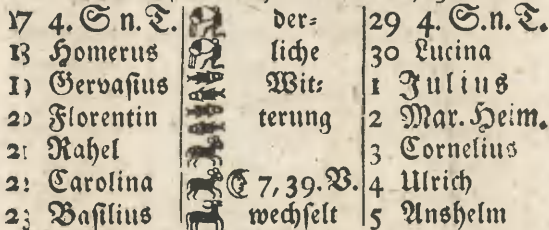 17 4. S. n. T. der⸗ 29 4. S. n. T.
18 Homerus liche 30 Lucina
19 Gervaſius Wit⸗ 1 Julius
20 Florentin terung 2 Mar. Heim.
21 Rahel 3 Cornelius
22 Carolina ☾ 7, 39. V. 4 Ulrich
23 Baſilius wechſelt 5 Anshelm